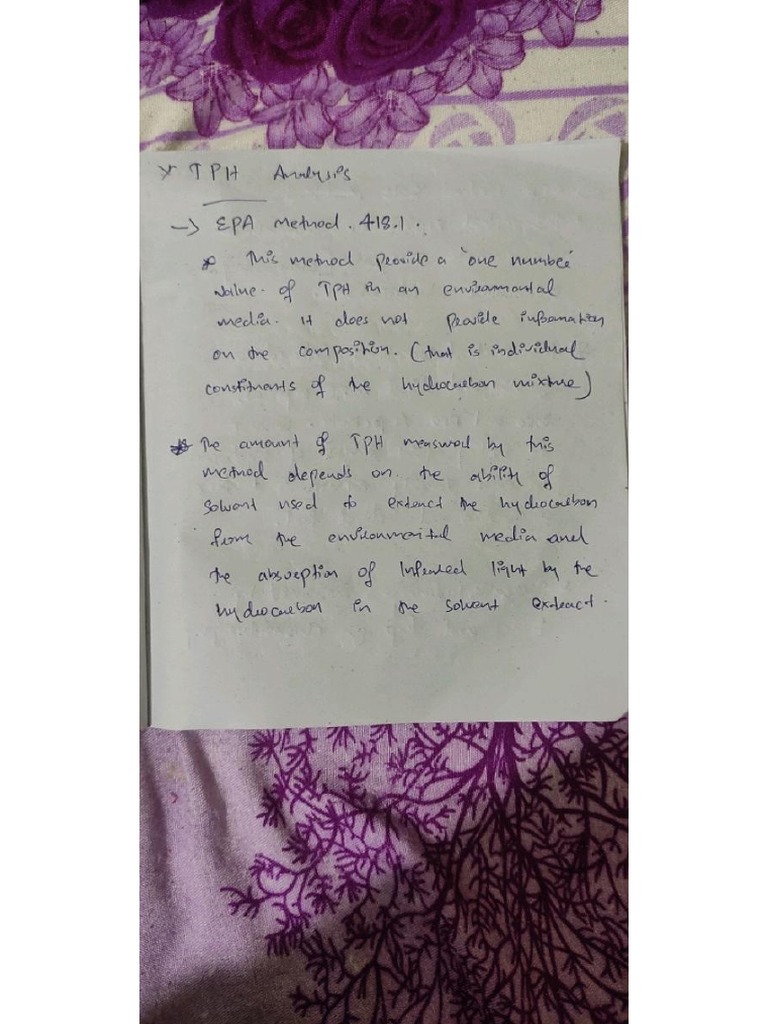 * TPH Analysis
→ EPA method. 418.1.
* This method provide a 'one number'
value. of TPH in an environmental
media. it does not provide information
on the composition. (that is individual
constituents of the hydrocarbon mixture)
* The amount of TPH measured by this
method depends on the ability of
solvant used to extract the hydrocarbon
from the environmental media and
the absorption of Infrared light by the
hydrocarbon in the solvent extract.